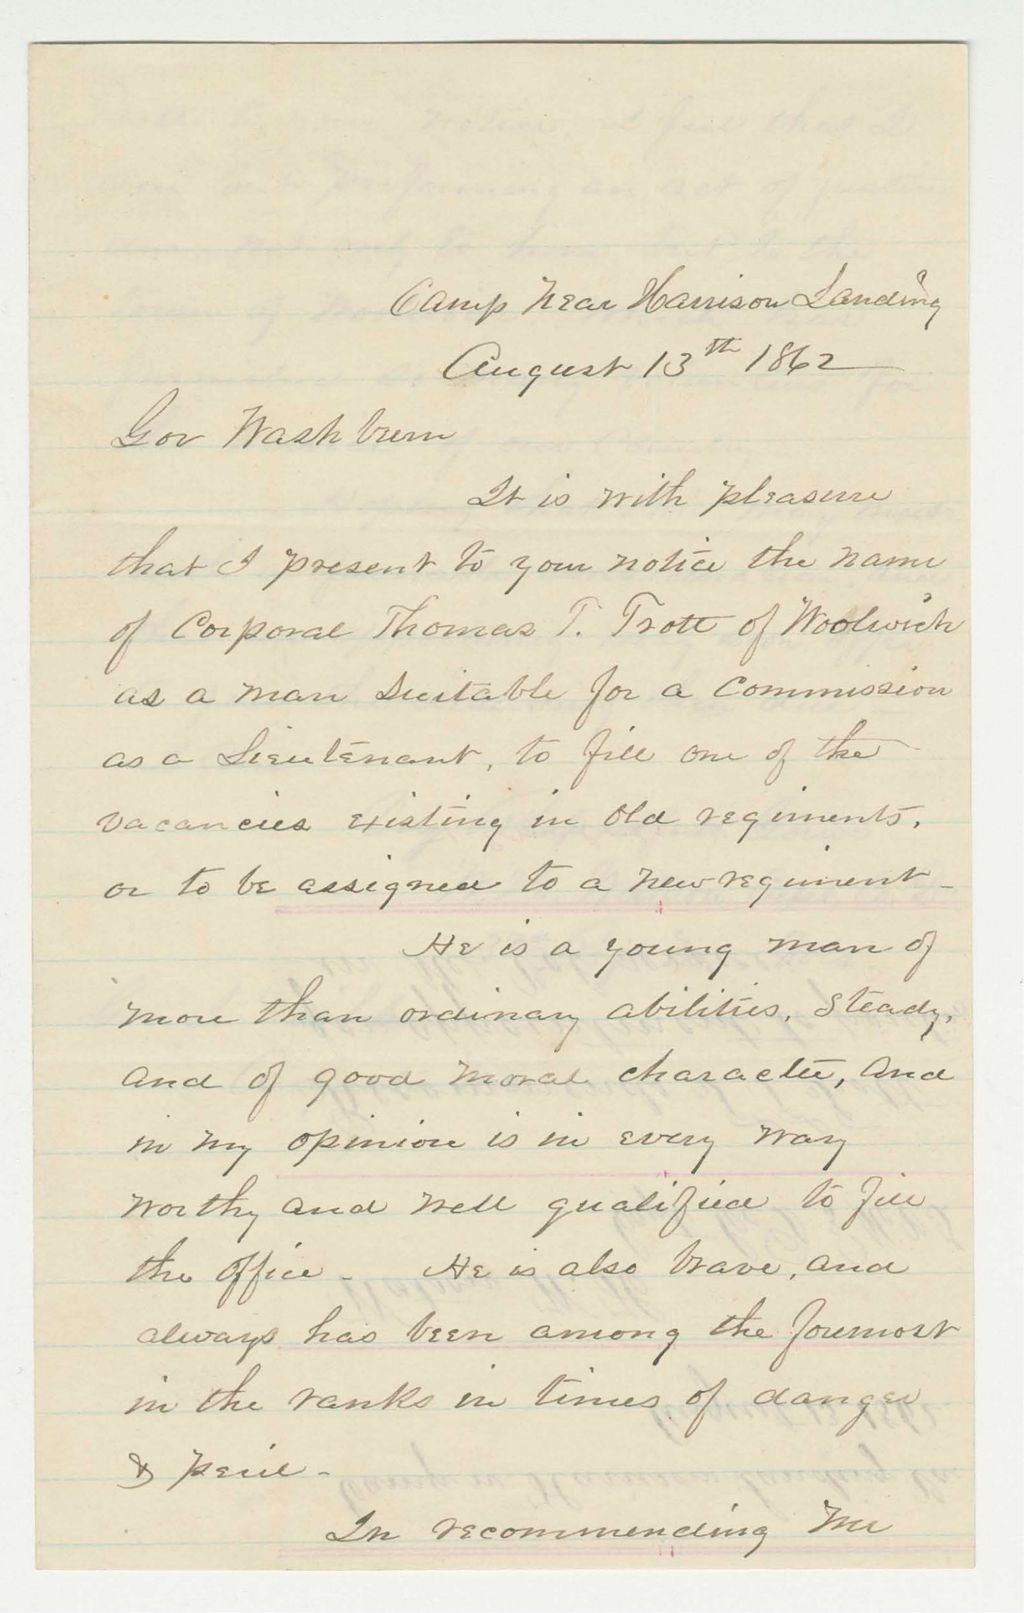 Camp Near Harrison Landing
August 13th 1862
Gov Washburn
It is with pleasure
that I present to your notice the name
of Corporal Thomas T. Trott of Woolwich
as a man suitable for a Commission
as a Lieutenant, to fill one of the
vacancies existing in old regiments,
or to be assigned to a new regiment -
He is a young man of
more than ordinary abilities, Steady,
and of good moral character, and
in my opinion is in every way
worthy and well qualified to fill
the office - He is also brave, and
always has been among the foremost
in the ranks in times of danger
& peril -
In recommending Mr